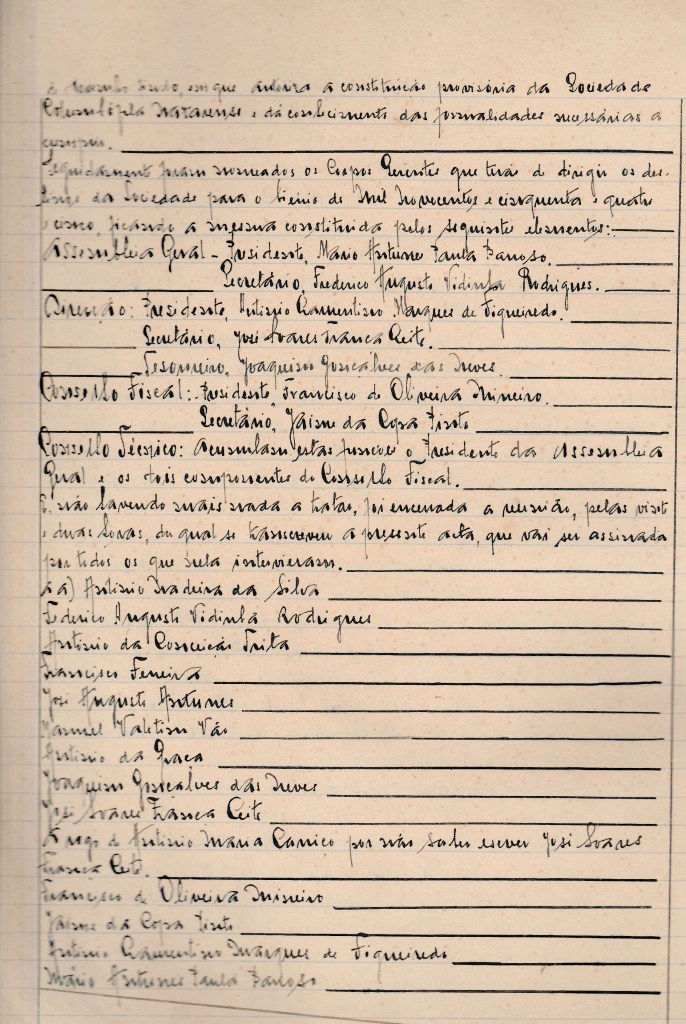 de Março findo, em que autoriza a constituição provisória da Sociedade
Columbófila Nazarense e dá conhecimento das formalidades necessárias a
cumprir.
Seguidamente foram nomeados os Corpos Gerentes que terão de dirigir os des-
tinos da Sociedade para o biénio de Mil Novecentos e cinquenta e quatro
e cinco, ficando a mesma constituida pelos seguintes elementos:
Assembleia Geral - Presidente, Mário Antunes Paula Barroso.
Secretário, Frederico Augusto Vidinha Rodrigues.
Direcção: Presidente, António Clamentino Marques de Figueiredo.
Secretário, José Soares Franca Leite.
Tesoureiro, Joaquim Gonçalves das Neves.
Conselho Fiscal: Presidente, Francisco de Oliveira Mineiro.
Secretário, Jaime da Copa Pinto
Conselho Técnico: Acumulam estas funções o Presidente da Assembleia
Geral e os dois componentes do Conselho Fiscal.
E não havendo mais nada a tratar, foi encerrada a reunião, pelas vinte
e duas horas, da qual se transcreveu a presente acta, que vai ser assinada
por todos os que nela intervieram.
a a) António Madeira da Silva
Frederico Augusto Vidinha Rodrigues
António da Conceição
Francisco Ferreira
José Augusto Antunes
Manuel Valetim Vão
António da Graça
Joaquim Gonçalves das Neves
José Soares Franca Leite
A rogo de António Maria Carriço por não saber escrever José Soares
Franca Leite.
Francisco de Oliveira Mineiro
Jaime da Copa Pinto
António Clamentino Marques de Figueiredo
Mário Antunes Paula Barroso